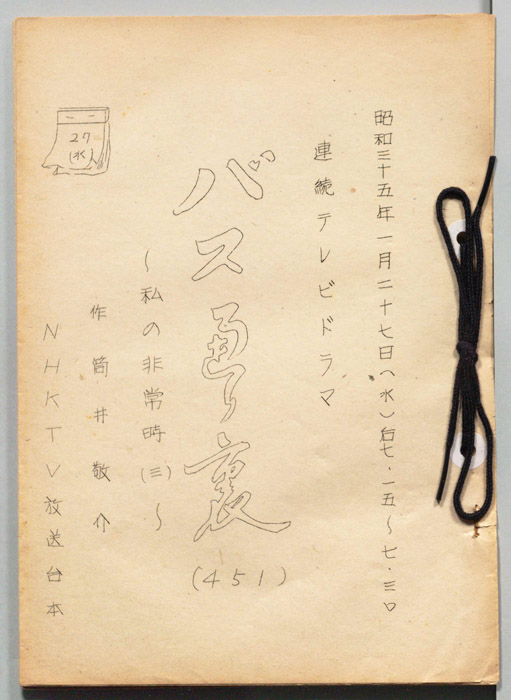 昭和三十五年一月二十七日(水)后七・一五~七・三〇
連続テレビドラマ
バス通り裏
(451)
~私の非常時(三)~
作 筒井敬介
NHKTV放送台本
27
(水)